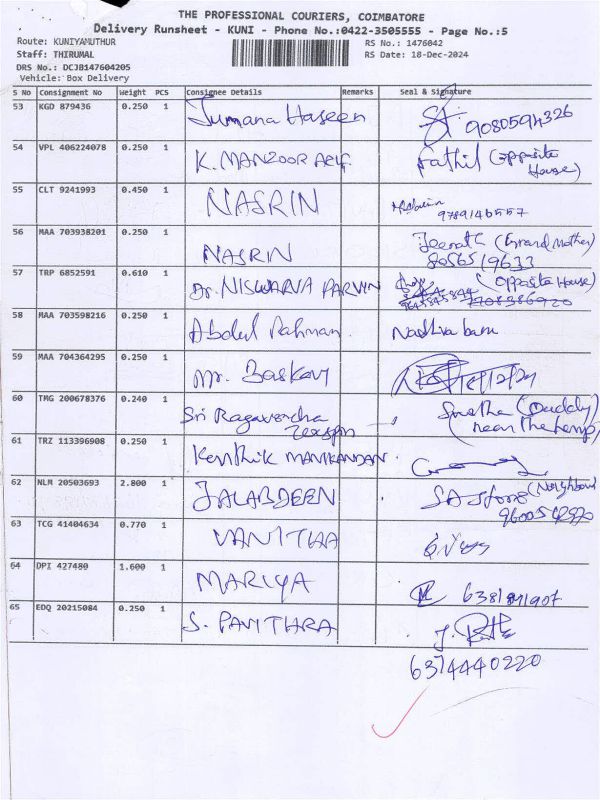 THE PROFESSIONAL COURIERS, COIMBATORE
Delivery Runsheet - KUNI - Phone No.:0422-3505555 - Page No.:5
Route: KUNIYAMUTHUR RS No.: 1476042
Staff: THIRUMAL RS Date: 18-Dec-2024
DRS No.: DCJB147604205
Vehicle: Box Delivery
S No Consignment No Weight PCS Consignee Details Remarks Seal & Signature
53 KGD 879436 0.250 1 Jumana Haseen 9080594326
54 VPL 406224078 0.250 1 K. MANZOOR Fathil (opposite
House)
55 CLT 9241993 0.450 1 NASRIN
9789146557
56 MAA 703938201 0.250 1 NASRIN (Grand mother)
8056519633
57 TRP 6852591 0.610 1 Dr. NISWARVA PARVIN (Opposite House)
58 MAA 703598216 0.250 1 Abdul Rahman. Nadhira banu
59 MAA 704364295 0.250 1 Mr. Baskar
60 TMG 200678376 0.240 1 Sri Ragavendra (Daddy)
near the
61 TRZ 113396908 0.250 1 Karthik MANIKANDAN.
62 NLM 20503693 2.800 1 JALABDEEN (Neighbour)
63 TCG 41404634 0.770 1 VANITHA
64 DPI 427480 1.600 1 MARIYA
65 EDQ 20215084 0.250 1 S. PAVITHRA
6374440220